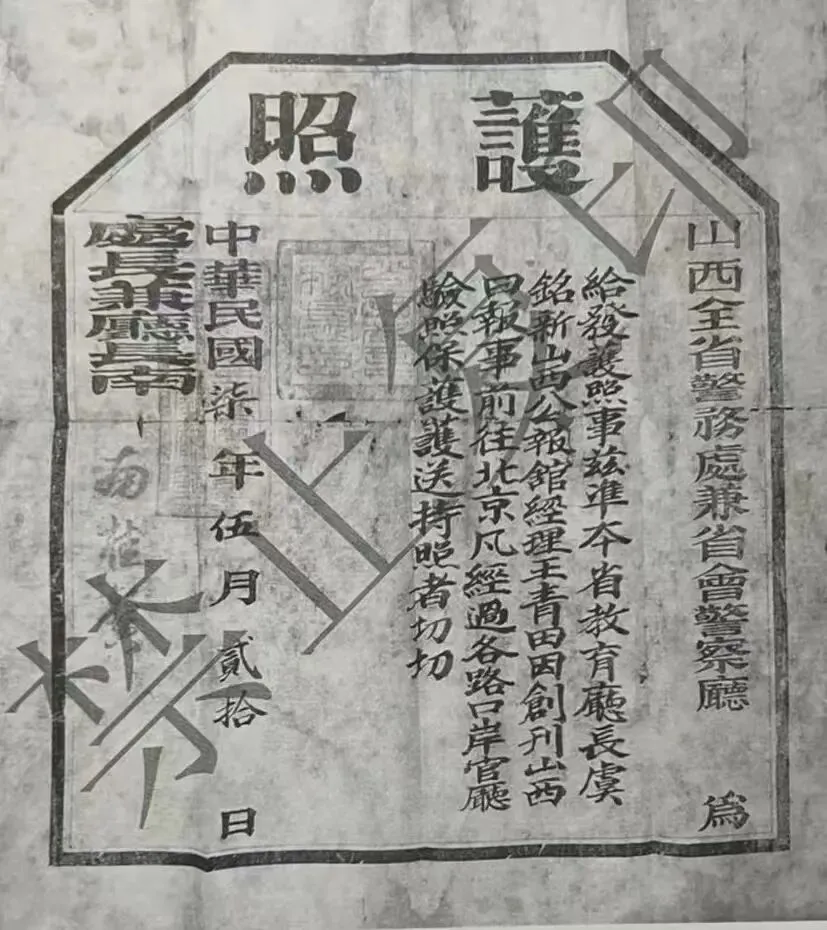 護照
山西全省警務處兼省會警察廳 為
給發護照事茲準本省教育廳長虞
銘新山西公報館經理王青田因創刊山西
日報事前往北京凡經過各路口岸官廳
驗照保護護送持照者切切
中華民國柒年伍月貳拾日
處長兼廳長南
南桂馨
禁止